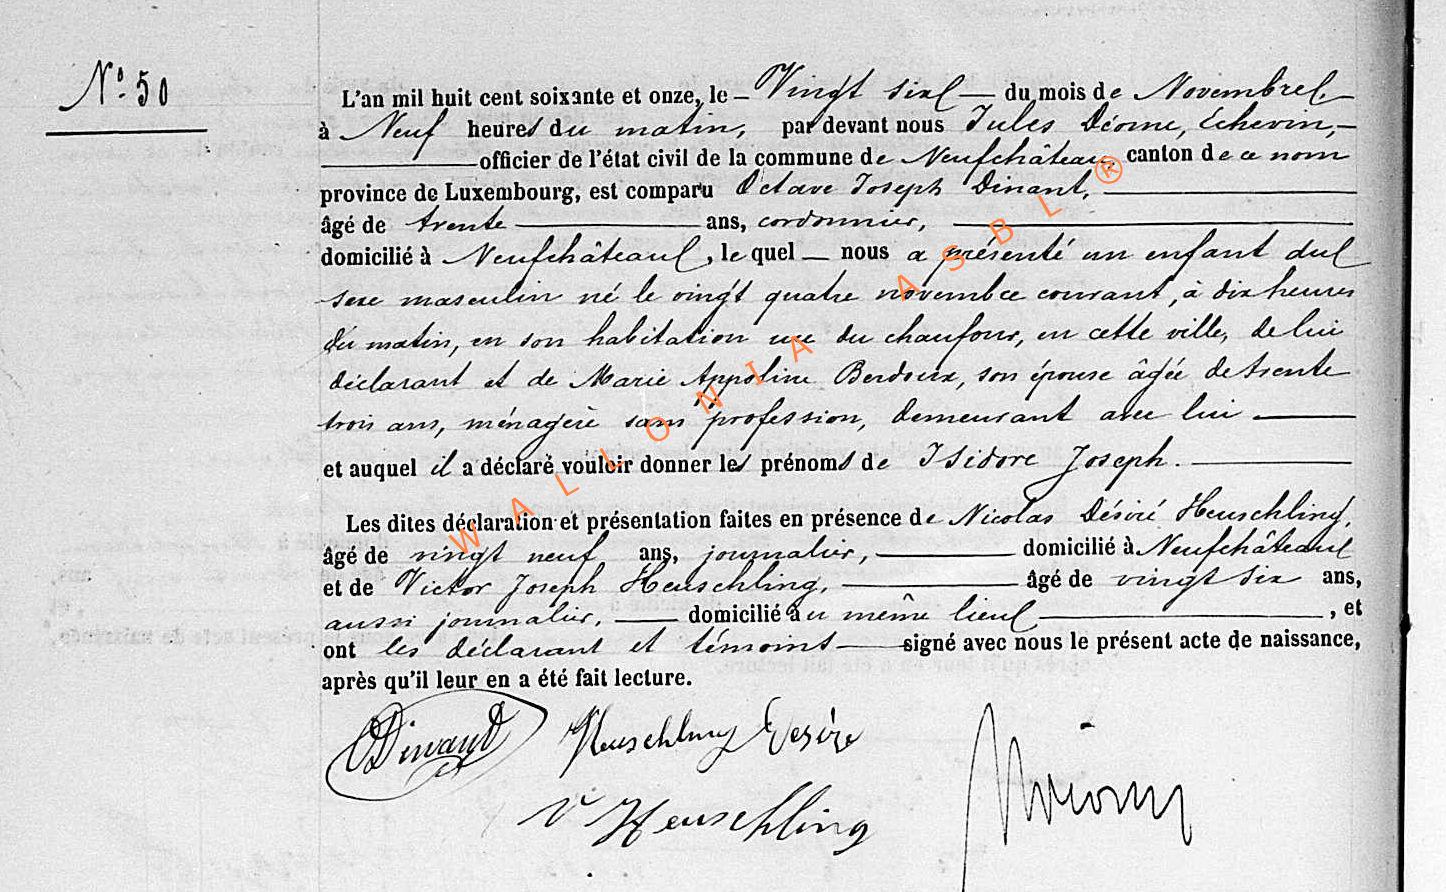 N° 50
L'an mil huit cent soixante et onze, le Vingt six du mois de Novembre
à Neuf heures du matin, par devant nous Jules Déome, Echevin,
officier de l'état civil de la commune de Neufchâteau, canton de ce nom
province de Luxembourg, est comparu Octave Joseph Dinant,
âgé de trente ans, cordonnier,
domicilié à Neufchâteau, le quel nous a présenté un enfant du
sexe masculin né le vingt quatre novembre courant, à dix heures
du matin, en son habitation rue du chaufour, en cette ville, de lui
déclarant et de Marie Appoline Berdoux, son épouse âgée de trente
trois ans, ménagère sans profession, demeurant avec lui
et auquel il a déclaré vouloir donner les prénoms de Isidore Joseph.
Les dites déclaration et présentation faites en présence de Nicolas Désiré Heuschling,
âgé de vingt neuf ans, journalier, domicilié à Neufchâteau
et de Victor Joseph Heuschling, âgé de vingt six ans,
aussi journalier, domicilié au même lieu, et
ont les déclarant et témoins signé avec nous le présent acte de naissance,
après qu'il leur en a été fait lecture.
ODinant Heuschling Desiré
V Heuschling
WALLONIA ASBL ®